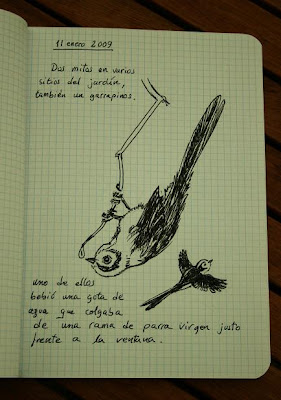 11 enero 2009
Dos mitos en varios
sitios del jardín,
también un garrapinos.
uno de ellos
bebió una gota de
agua que colgaba
de una rama de parra virgen justo
frente a la ventana.